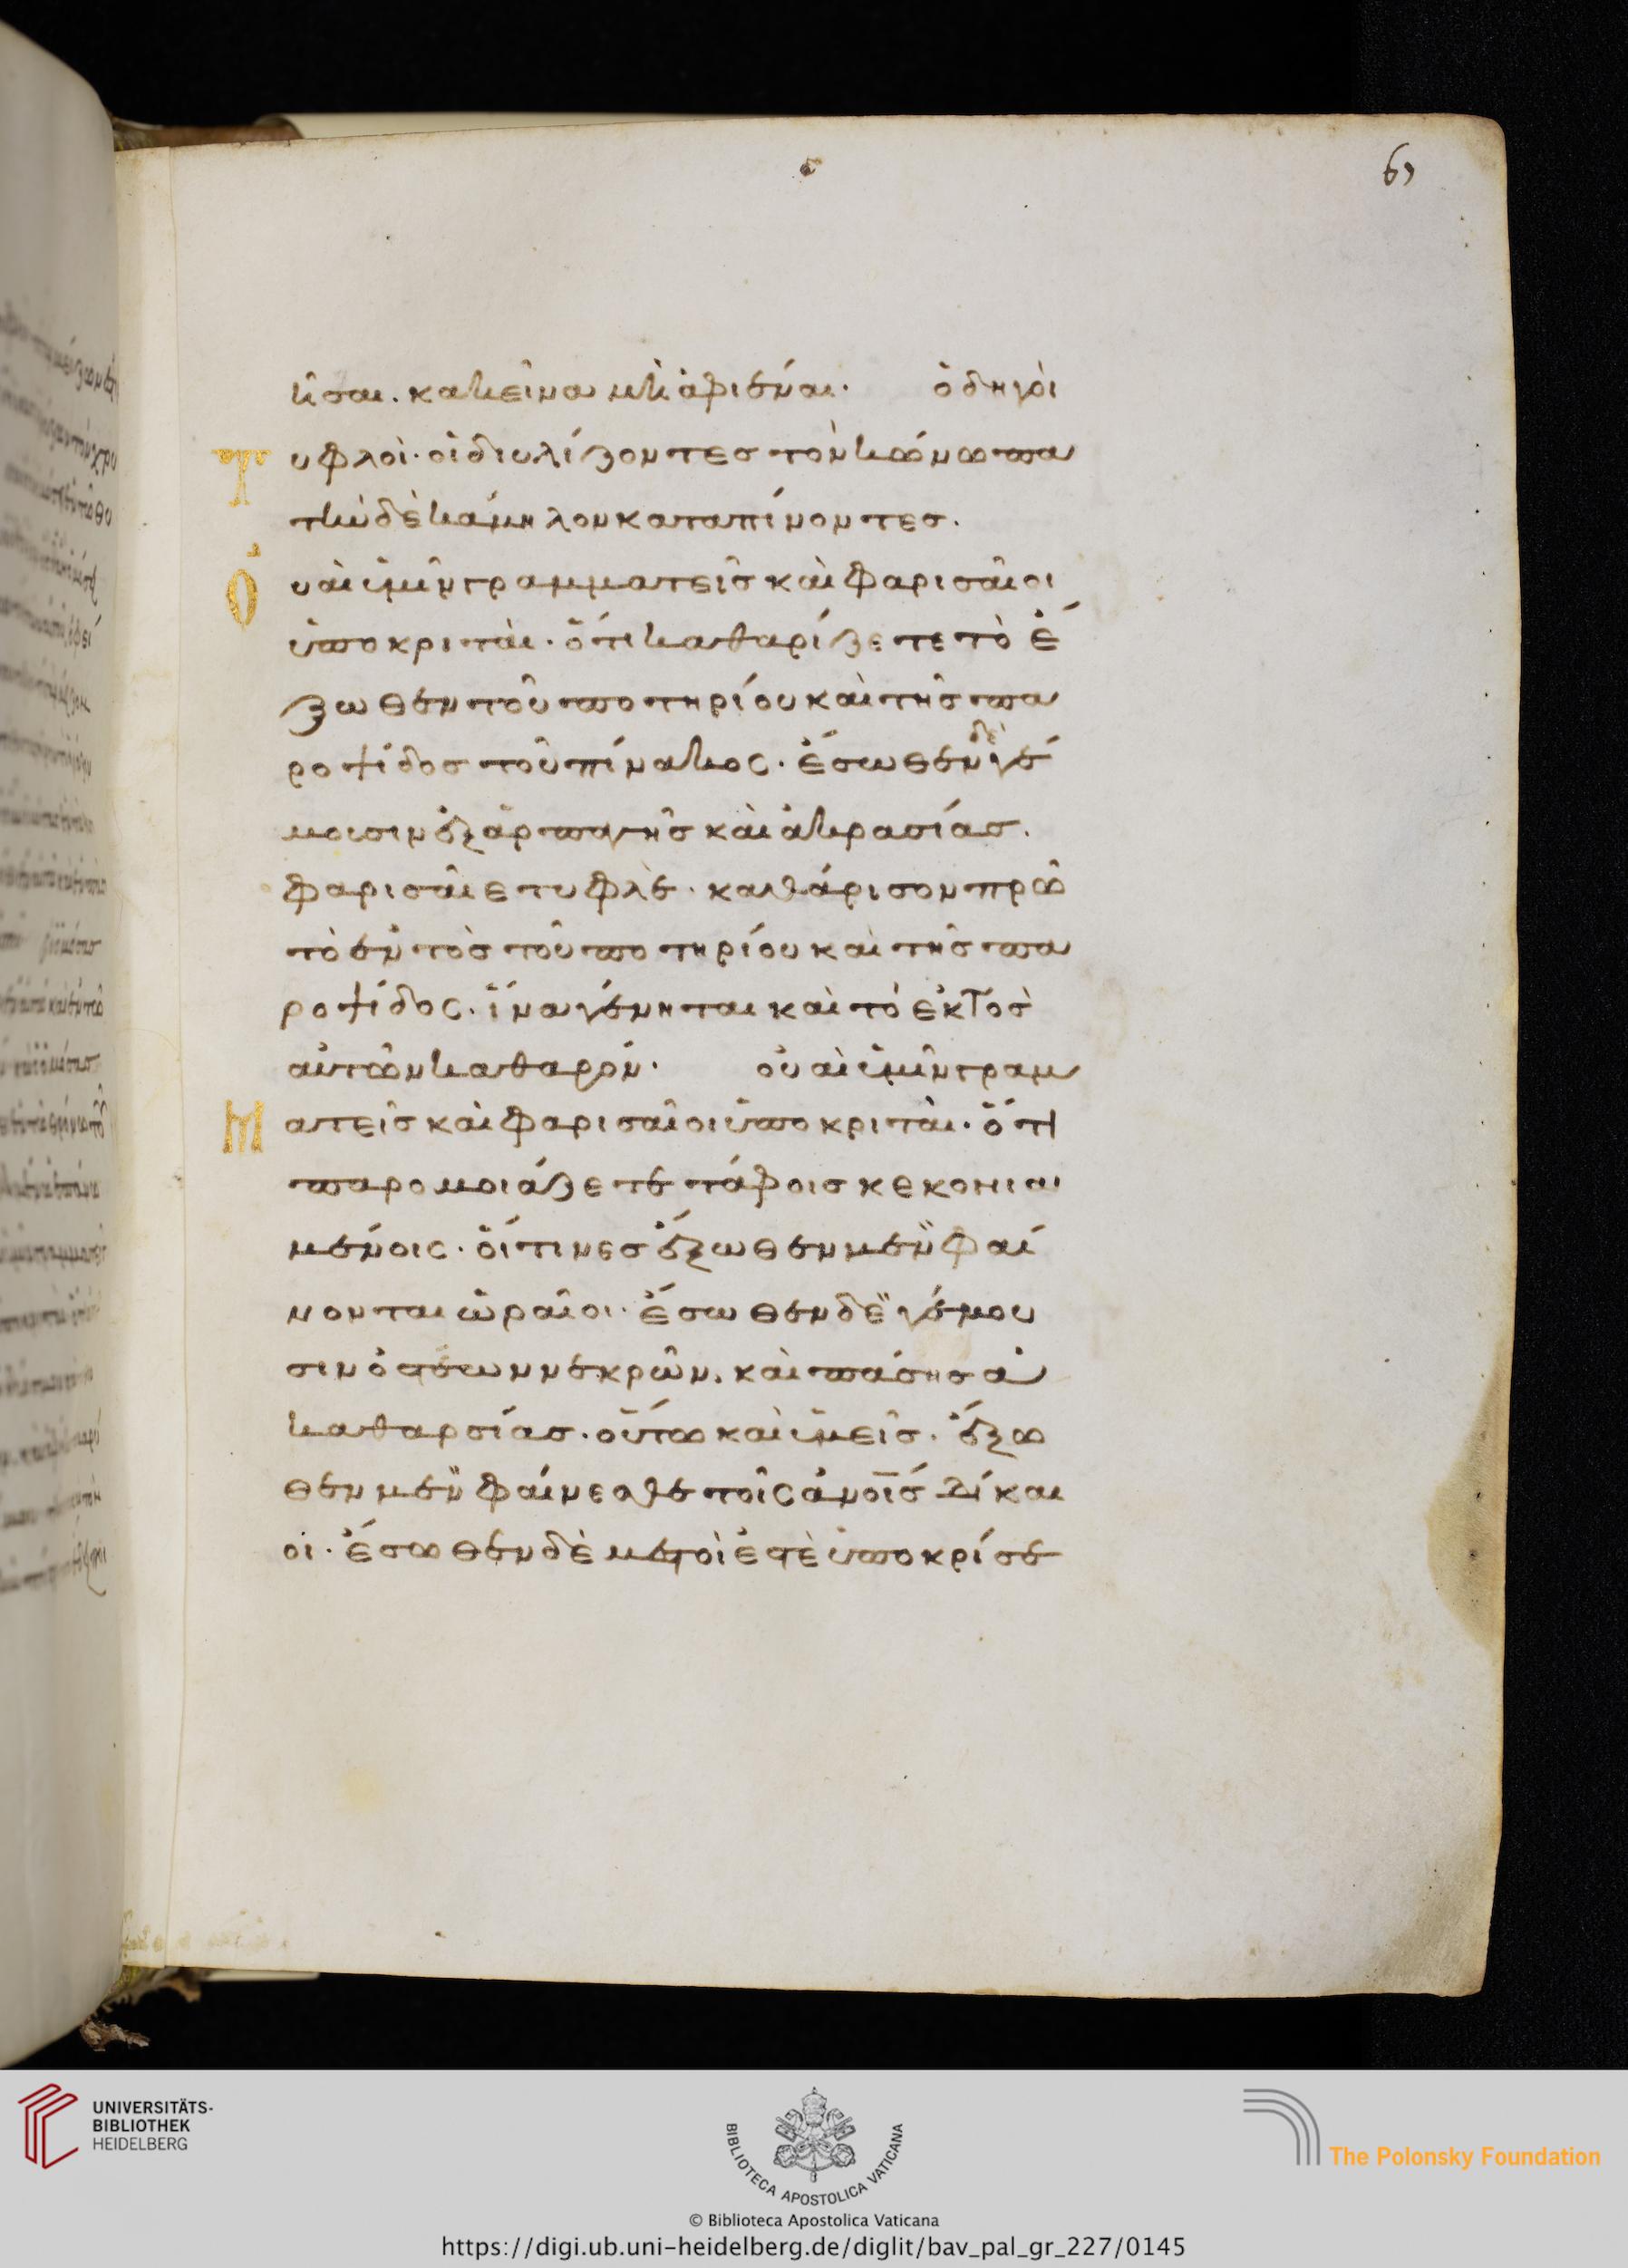 69
ῆσαι. κακεῖνα μὴ ἀφιέναι· ὁδηγοὶ
Τυφλοὶ· οἱ διυλίζοντες τὸν κώνωπα
τὴν δὲ κάμηλον καταπίνοντες.
Οὐαὶ ὑμῖν γραμματεῖς καὶ φαρισαῖοι
ὑποκριταὶ· ὅτι καθαρίζετε τὸ ἔ
ξωθεν τοῦ ποτηρίου καὶ τῆς πα
ροψίδος τοῦ πίνακος· ἔσωθεν δὲ γέ
μουσιν ἐξ ἁρπαγῆς καὶ ἀκρασίας.
φαρισαῖε τυφλὲ· καθάρισον πρῶ
τὸ ἐντὸς τοῦ ποτηρίου καὶ τῆς πα
ροψίδος· ἵνα γένηται καὶ τὸ ἐκτὸς
αὐτῶν καθαρόν· οὐαὶ ὑμῖν γραμ
Ματεῖς καὶ φαρισαῖοι ὑποκριταὶ· ὅτι
παρομοιάζετε τάφοις κεκονια
μένοις· οἵτινες ἔξωθεν μὲν φαί
νονται ὡραῖοι· ἔσωθεν δὲ γέμου
σιν ὀστέων νεκρῶν. καὶ πάσης ἀ
καθαρσίας· οὕτω καὶ ὑμεῖς· ἔξω
θεν μὲν φαίνεσθε τοῖς ἀνοῖς δίκαι
οι· ἔσωθεν δὲ μεστοὶ ἐστὲ ὑποκρίσε
UNIVERSITÄTS-
BIBLIOTHEK
HEIDELBERG
BIBLIOTECA APOSTOLICA VATICANA
The Polonsky Foundation
© Biblioteca Apostolica Vaticana
https://digi.ub.uni-heidelberg.de/diglit/bav_pal_gr_227/0145